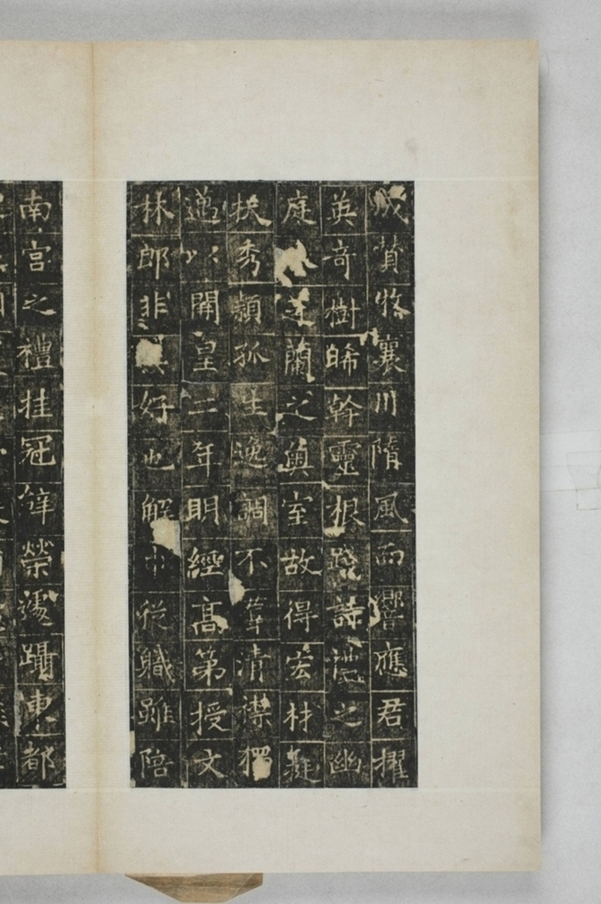 贊牧襄川隋風而響應君擢
英奇樹晞幹靈根踐詩禮之幽
庭蘭之奧室故得宏材
挾秀穎孤生逸調不羣清襟獨
邁以開皇二年明經高第授文
林郎非好也解巾從職雖陪
南宮之禮挂冠辭榮遂躡東都